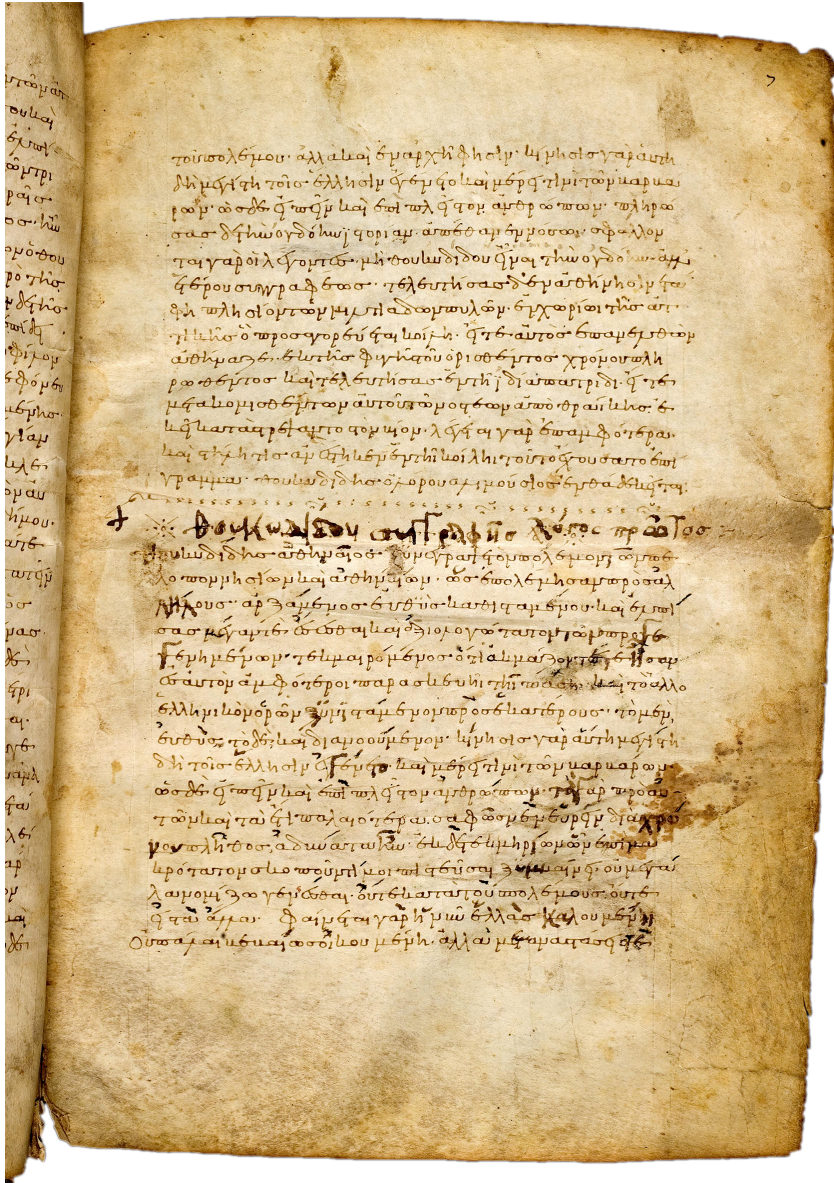 τοῦ πολέμου· ἀλλὰ καὶ ἐν ἀρχῆ φησίν· κίνησις γὰρ αὕτη
δὴ μεγίστη τοῖς ἕλλησιν ἐγένετο καὶ μέρει τινὶ τῶν βαρβά
ρων· ὡς δὲ εἰπεῖν καὶ ἐπὶ πλεῖστον ἀνθρώπων· πληρώ
σας δὲ τὴν ὀγδόην ἱστορίαν· ἀπέθανεν νόσωι· σφάλλον
ται γὰρ οἱ λέγοντες· μὴ θουκυδίδου εἶναι τὴν ὀγδόην· ἀλλ
ἑτέρου συγγραφέως· τελευτήσας δ' ἐν ἀθήνησιν ἐτά
φη πλησίον τῶν μιλτιαδῶν πυλῶν· ἐν χωρίωι τῆς ἀτ
τικῆς ὃ προσαγορεύεται κοίλη· εἴτε αὐτὸς ἐπανελθὼν
ἀθήναζε· ἐκ τῆς φυγῆς τοῦ ὁρισθέντος χρόνου πλη
ρωθέντος καὶ τελευτήσας ἐν τῆ ἰδίαι πατρίδι· εἴτε
μετακομισθέντων αὐτοῦ τῶν ὀστέων ἀπὸ θράικης· ἐ
κεῖ καταστρέψαντος τὸν βίον· λέγεται γὰρ ἐπ' ἀμφότερα·
καὶ στήλη τις ἀνέστηκεν ἐν τῆι κοίληι τοῦτο ἔχουσα τὸ ἐπί
γραμμα· θουκυδίδης ὀλόρου ἁλιμούσιος ἐνθάδε κεῖται·
θουκυδίδου συγγραφῆς λόγος πρῶτος
θουκυδίδης ἀθηναῖος ξυνέγραψε τὸν πόλεμον τῶν πε
λοποννησίων καὶ ἀθηναίων· ὡς ἐπολέμησαν πρὸς ἀλ
λήλους· ἀρξάμενος εὐθὺς καθισταμένου· καὶ ἐλπί
σας μέγαν τε ἔσεσθαι καὶ ἀξιολογώτατον τῶν προγε
γενημένων· τεκμαιρόμενος· ὅτι ἀκμάζοντές τε ἦσαν
ἐς αὐτὸν ἀμφότεροι παρασκευῆι τῆι πάσηι· καὶ τὸ ἄλλο
ἑλληνικὸν ὁρῶν ξυνιστάμενον πρὸς ἑκατέρους· τὸ μὲν
εὐθύς, τὸ δὲ καὶ διανοούμενον· κίνησις γὰρ αὕτη μεγίστη
δὴ τοῖς ἕλλησιν ἐγένετο· καὶ μέρει τινὶ τῶν βαρβάρων·
ὡς δὲ εἰπεῖν καὶ ἐπὶ πλεῖστον ἀνθρώπων· τὰ γὰρ πρὸ αὐ
τῶν καὶ τὰ ἔτι παλαιότερα· σαφῶς μὲν εὑρεῖν διὰ χρό
νου πλῆθος, ἀδύνατα ἦν· ἐκ δὲ τεκμηρίων ὧν ἐπὶ μα
κρότατον σκοποῦντί μοι πιστεῦσαι ξυμβαίνει· οὐ μεγά
λα νομίζω γενέσθαι· οὔτε κατὰ τοὺς πολέμους· οὔτε
ἐς τὰ ἄλλα· φαίνεται γὰρ ἡ νῦν ἑλλὰς καλουμένη
οὐ πάλαι βεβαίως οἰκουμένη· ἀλλὰ μεταναστάσεις τε